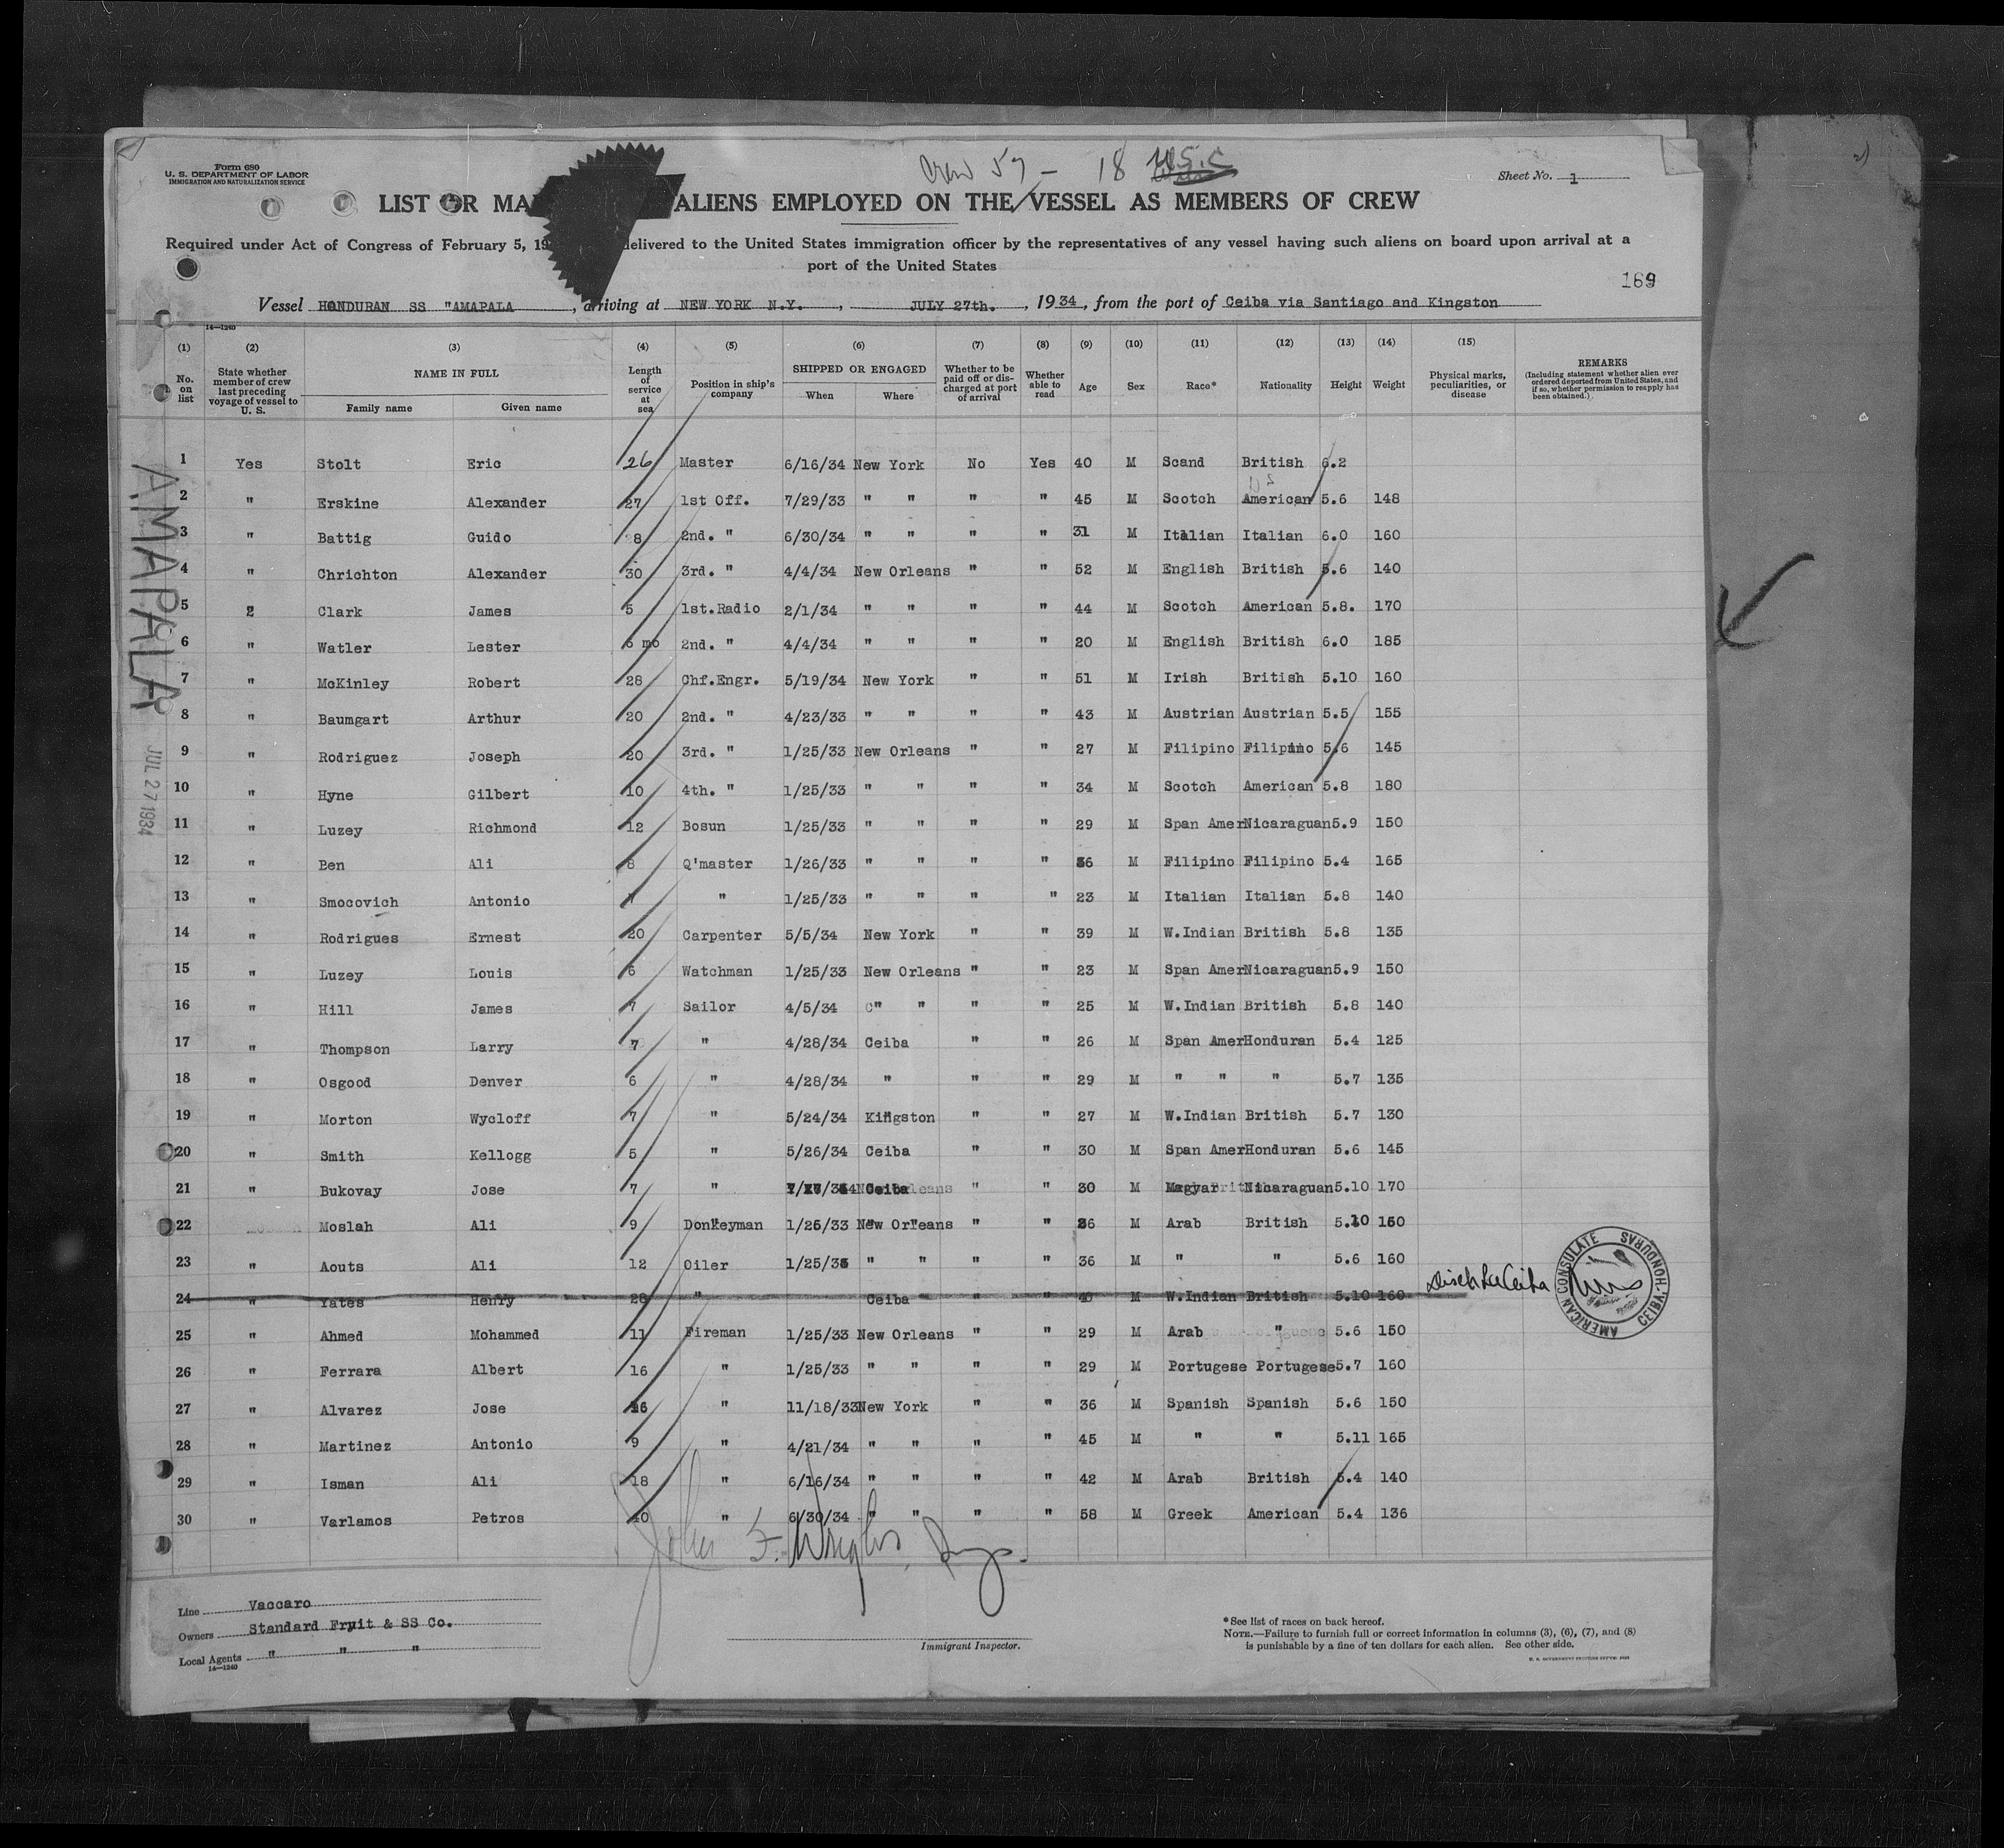 Form 680
U. S. DEPARTMENT OF LABOR
IMMIGRATION AND NATURALIZATION SERVICE
Crew 57 - 18 U.S.C
Sheet No. 1
LIST OR MA ALIENS EMPLOYED ON THE VESSEL AS MEMBERS OF CREW
Required under Act of Congress of February 5, 19 delivered to the United States immigration officer by the representatives of any vessel having such aliens on board upon arrival at a
port of the United States
169
Vessel HONDURAN SS "AMAPALA , arriving at NEW YORK N.Y. , JULY 27th. , 1934 , from the port of Ceiba via Santiago and Kingston
14—1240
(1) (2) (3) (4) (5) (6) (7) (8) (9) (10) (11) (12) (13) (14) (15)
No. on list State whether member of crew last preceding voyage of vessel to U. S. NAME IN FULL Family name Given name Length of service at sea Position in ship's company SHIPPED OR ENGAGED When Where Whether to be paid off or discharged at port of arrival Whether able to read Age Sex Race* Nationality Height Weight Physical marks, peculiarities, or disease REMARKS (Including statement whether alien ever ordered deported from United States, and if so, whether permission to reapply has been obtained.)
1 Yes Stolt Eric 26 Master 6/16/34 New York No Yes 40 M Scand British 6.2
US
2 " Erskine Alexander 27 1st Off. 7/29/33 " " " " 45 M Scotch American 5.6 148
3 " Battig Guido 8 2nd. " 6/30/34 " " " " 31 M Italian Italian 6.0 160
4 " Chrichton Alexander 30 3rd. " 4/4/34 New Orleans " " 52 M English British 5.6 140
5 Clark James 5 1st.Radio 2/1/34 " " " " 44 M Scotch American 5.8. 170
6 " Watler Lester 6 mo 2nd. " 4/4/34 " " " " 20 M English British 6.0 185
7 " McKinley Robert 28 Chf.Engr. 5/19/34 New York " " 51 M Irish British 5.10 160
8 " Baumgart Arthur 20 2nd. " 4/23/33 " " " " 43 M Austrian Austrian 5.5 155
9 " Rodriguez Joseph 20 3rd. " 1/25/33 New Orleans " " 27 M Filipino Filipino 5.6 145
10 " Hyne Gilbert 10 4th. " 1/25/33 " " " " 34 M Scotch American 5.8 180
11 " Luzey Richmond 12 Bosun 1/25/33 " " " " 29 M Span Amer Nicaraguan 5.9 150
12 " Ben Ali 8 Q'master 1/26/33 " " " " 36 M Filipino Filipino 5.4 165
13 " Smocovich Antonio 7 " 1/25/33 " " " " 23 M Italian Italian 5.8 140
14 " Rodrigues Ernest 20 Carpenter 5/5/34 New York " " 39 M W.Indian British 5.8 135
15 " Luzey Louis 6 Watchman 1/25/33 New Orleans " " 23 M Span Amer Nicaraguan 5.9 150
16 " Hill James 7 Sailor 4/5/34 " " " " 25 M W.Indian British 5.8 140
17 " Thompson Larry 7 " 4/28/34 Ceiba " " 26 M Span Amer Honduran 5.4 125
18 " Osgood Denver 6 " 4/28/34 " " " 29 M " " " 5.7 135
19 " Morton Wycloff 7 " 5/24/34 Kingston " " 27 M W.Indian British 5.7 130
20 " Smith Kellogg 5 " 5/26/34 Ceiba " " 30 M Span Amer Honduran 5.6 145
21 " Bukovay Jose 7 " Ceiba " " 30 M Magyar Nicaraguan 5.10 170
22 " Moslah Ali 9 Donkeyman 1/26/33 New Orleans " " 36 M Arab British 5.10 150
23 " Aouts Ali 12 Oiler 1/25/33 " " " " 36 M " " 5.6 160
24 " Yates Henry 28 " Ceiba " " 40 M W.Indian British 5.10 160 Disch La Ceiba
AMERICAN CONSULATE CEIBA, HONDURAS
25 " Ahmed Mohammed 11 Fireman 1/25/33 New Orleans " " 29 M Arab " 5.6 150
26 " Ferrara Albert 16 " 1/25/33 " " " " 29 M Portugese Portugese 5.7 160
27 " Alvarez Jose 16 " 11/18/33 New York " " 36 M Spanish Spanish 5.6 150
28 " Martinez Antonio 9 " 4/21/34 " " " " 45 M " " 5.11 165
29 " Isman Ali 18 " 6/16/34 " " " " 42 M Arab British 5.4 140
30 " Varlamos Petros 40 " 6/30/34 " " " " 58 M Greek American 5.4 136
AMAPALA
JUL 27 1934
John F.
Line Vaccaro
Owners Standard Fruit & SS Co.
Local Agents " " "
14—1240
Immigrant Inspector.
*See list of races on back hereof.
NOTE.—Failure to furnish full or correct information in columns (3), (6), (7), and (8)
is punishable by a fine of ten dollars for each alien. See other side.